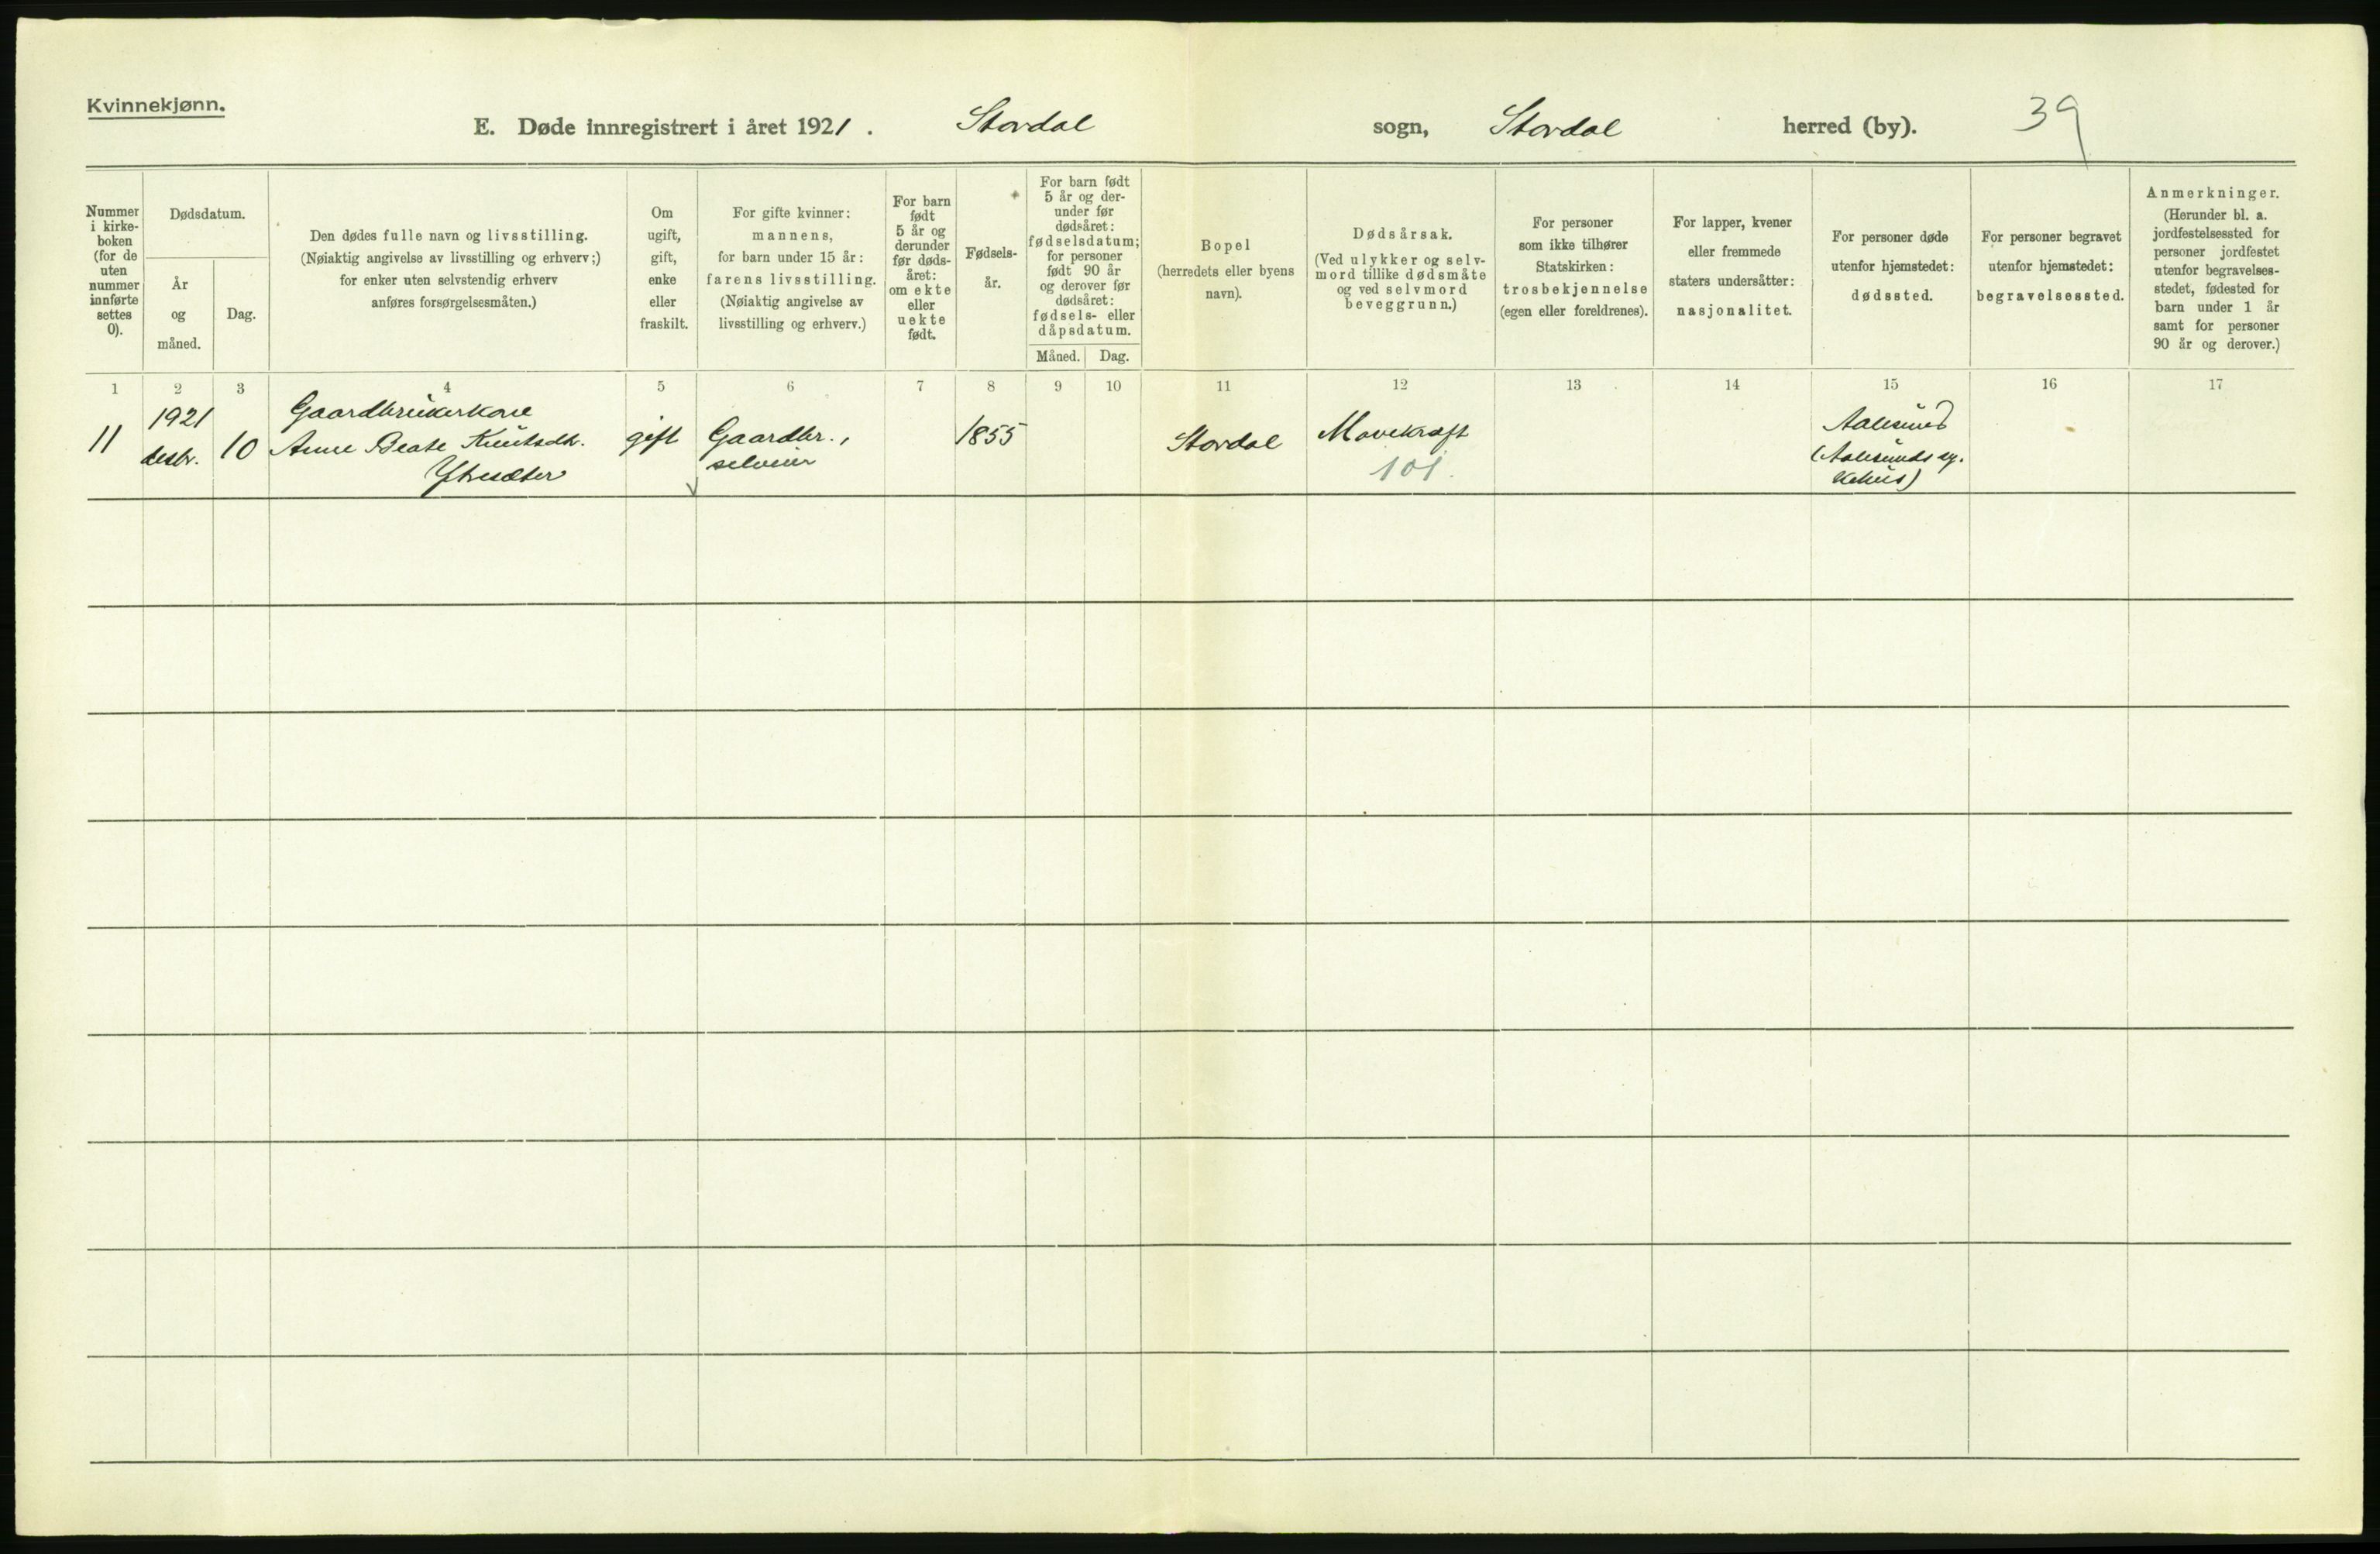 Kvinnekjønn.
E. Døde innregistrert i året 1921. Stordal sogn, Stordal herred (by). 39
Nummer
i kirke-
boken
(for de
uten
nummer
innførte
settes
0).
Dødsdatum.
År
og
måned.
Dag.
Den dødes fulle navn og livsstilling.
(Nøiaktig angivelse av livsstilling og erhverv;)
for enker uten selvstendig erhverv
anføres forsørgelsesmåten.)
Om
ugift,
gift,
enke
eller
fraskilt.
For gifte kvinner:
mannens,
for barn under 15 år:
farens livsstilling.
(Nøiaktig angivelse av
livsstilling og erhverv.)
For barn
født
5 år og
derunder
før døds-
året:
om ekte
eller
uekte
født.
Fødsels-
år.
For barn født
5 år og der-
under før
dødsåret:
fødselsdatum;
for personer
født 90 år
og derover før
dødsåret:
fødsels- eller
dåpsdatum.
Måned. Dag.
Bopel
(herredets eller byens
navn).
Dødsårsak.
(Ved ulykker og selv-
mord tillike dødsmåte
og ved selvmord
beveggrunn.)
For personer
som ikke tilhører
Statskirken:
trosbekjennelse
(egen eller foreldrenes).
For lapper, kvener
eller fremmede
staters undersåtter:
nasjonalitet.
For personer døde
utenfor hjemstedet:
dødssted.
For personer begravet
utenfor hjemstedet:
begravelsessted.
Anmerkninger.
(Herunder bl. a.
jordfestelsessted for
personer jordfestet
utenfor begravelses-
stedet, fødested for
barn under 1 år
samt for personer
90 år og derover.)
1 2 3 4 5 6 7 8 9 10 11 12 13 14 15 16 17
11
1921
desbr.
10
Gaardbrukerkone
Anne Beate Knutsdtr.
gift
Gaardbr.,
selveier
1855
Stordal
Mavekræft
101.
Aalesund
(Aalesunds sy-
kehus)